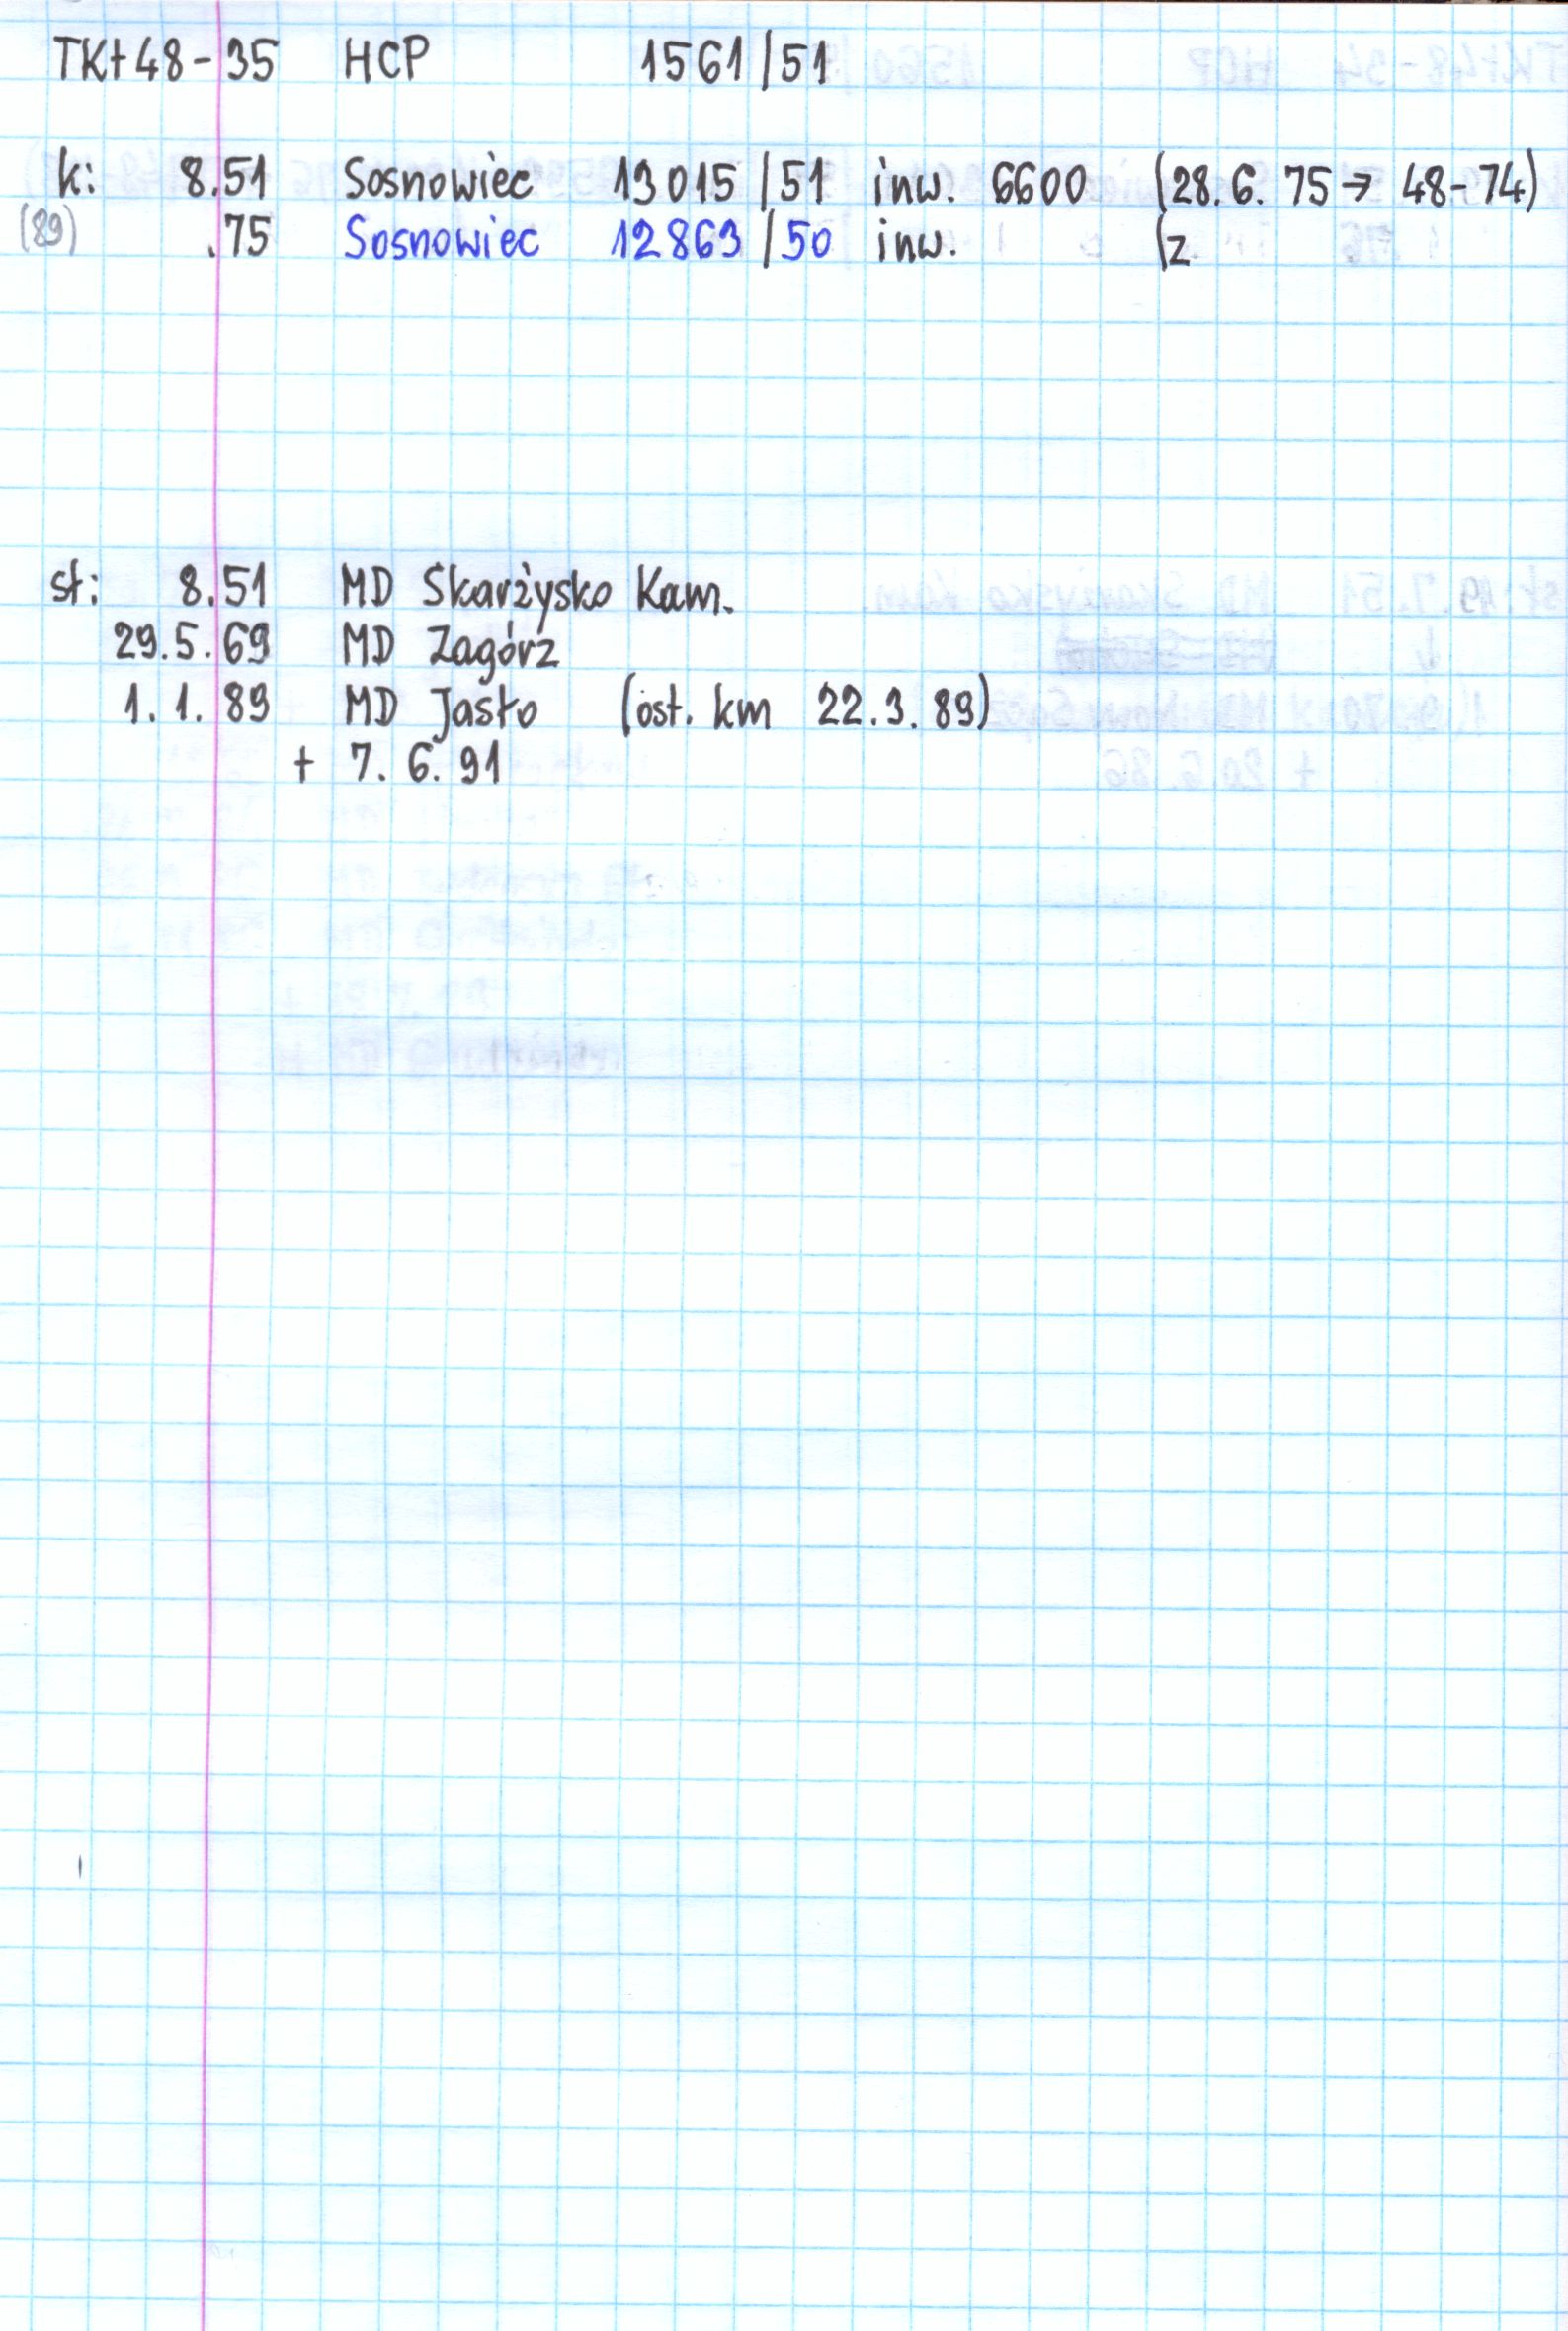 TKt48-35 HCP 1561/51
k: 8.51 Sosnowiec 13015/51 inw. 6600 (28.6.75→ 48-74)
(89) .75 Sosnowiec 12863/50 inw. (z
st: 8.51 MD Skarżysko Kam.
29.5.69 MD Zagórz
1.1.89 MD Jasło (ost. km 22.3.89)
+ 7.6.91